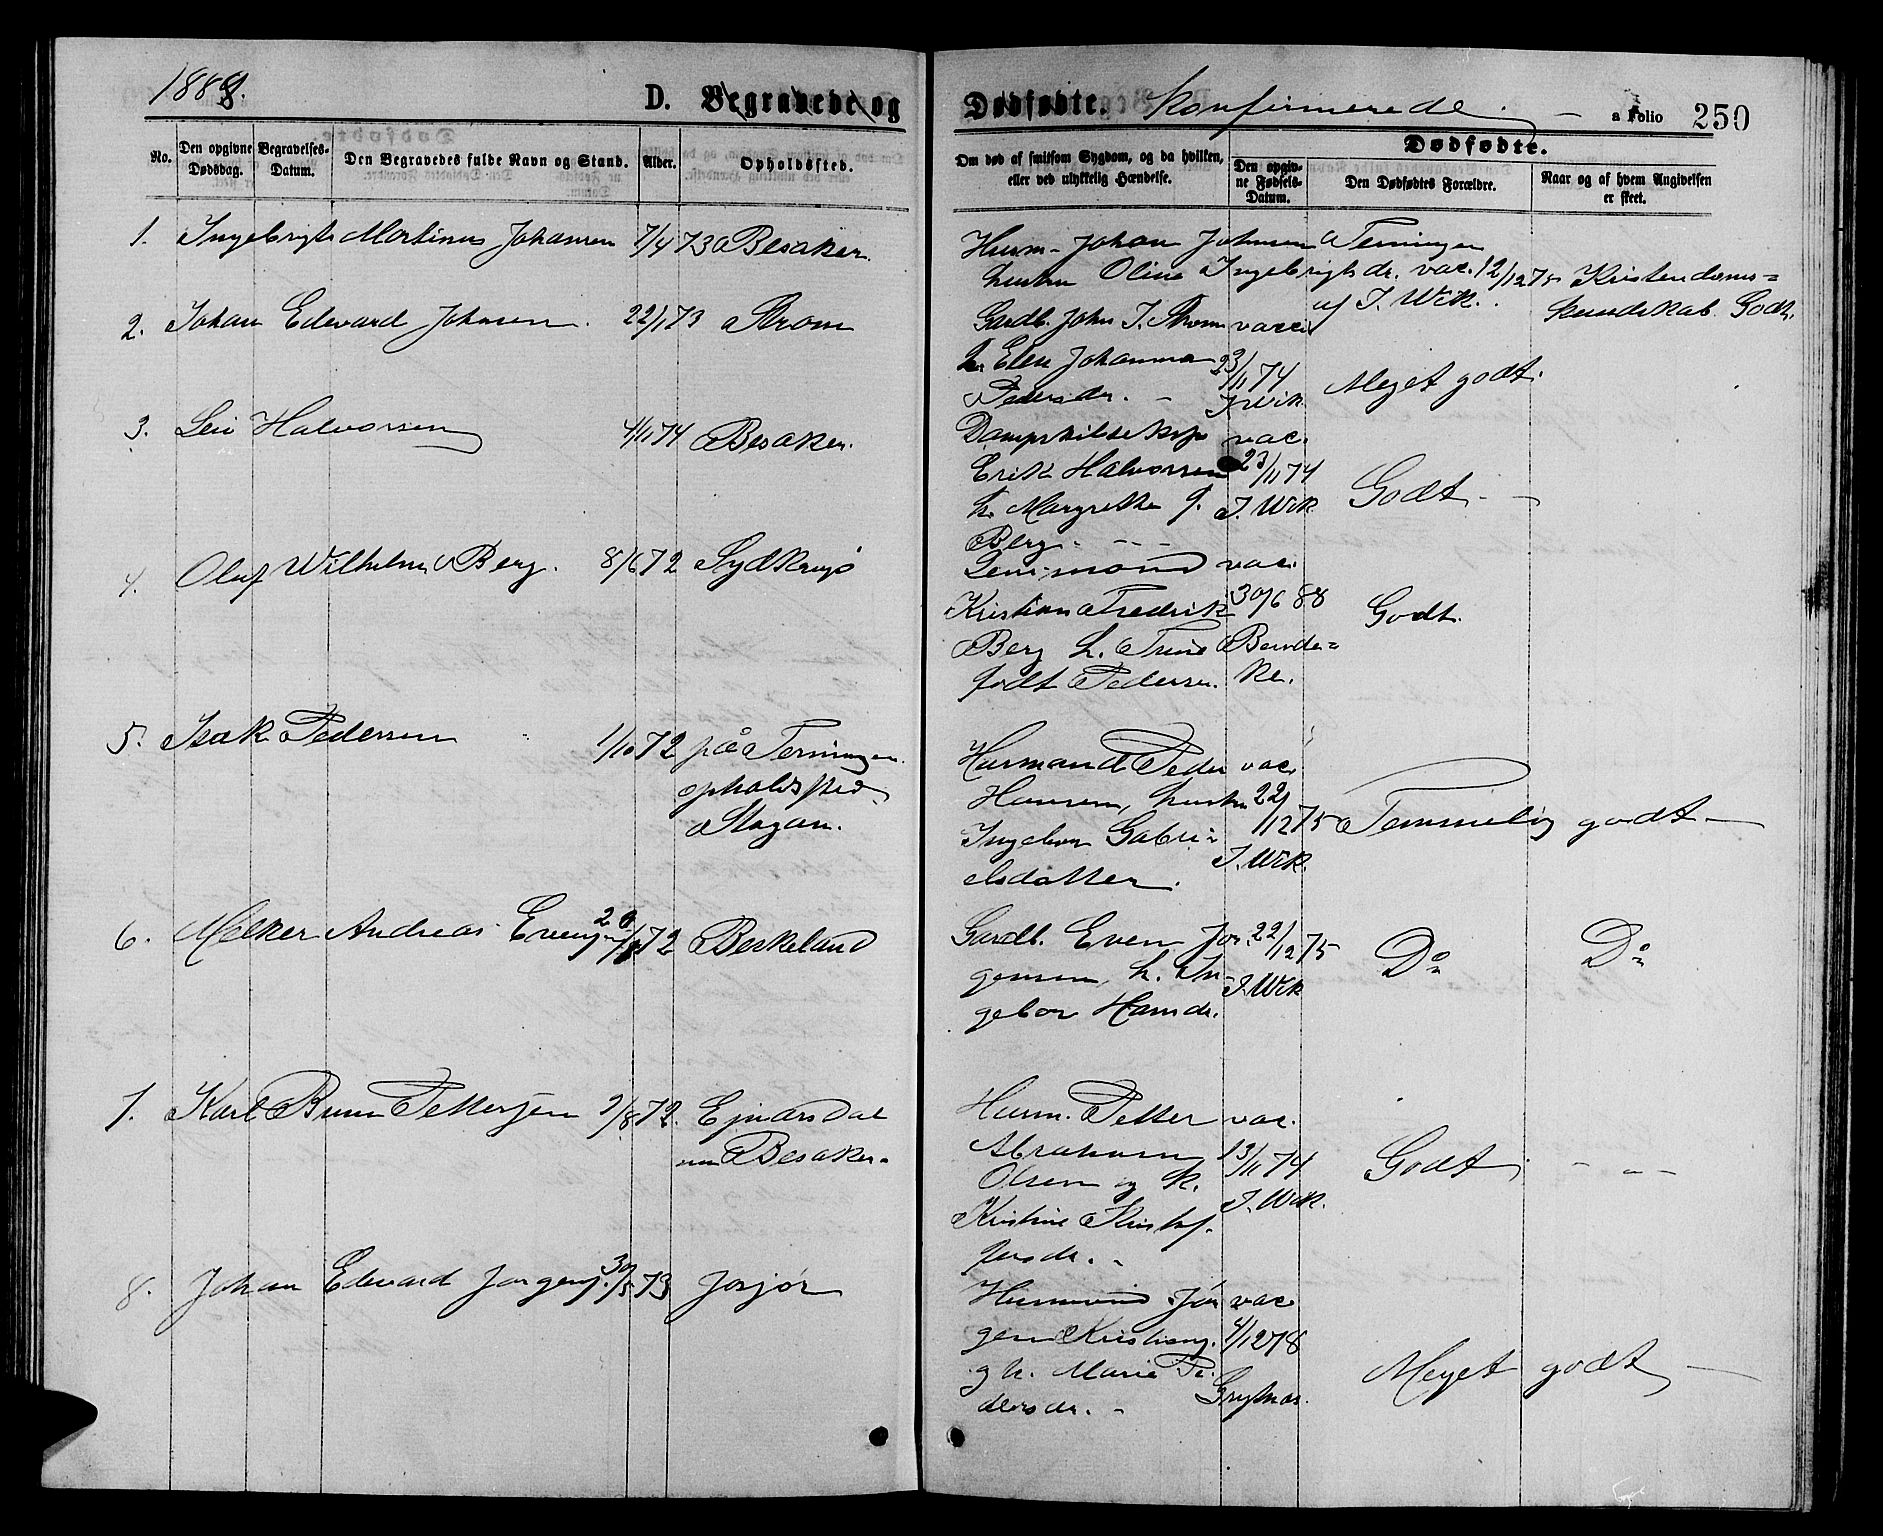 1888.
D. Begravede og Dødfødte. Konfirmerede
a Folio 250
No.
Den opgivne Dødsdag.
Begravelses-Datum.
Den Begravedes fulde Navn og Stand.
Alder.
Opholdssted.
Om død af smitsom Sygdom, og da hvilken,
eller ved ulykkelig Hændelse.
Dødfødte.
Den opgiv-
ne Fødsels-
Datum.
Den Dødfødtes Forældre.
Naar og af hvem Angivelsen
er skeet.
1. Ingebrigt Martinus Johansen 7/4 73 Besaker.
Husm. Johan Johnsen Terningen
hustru Oline Ingebrigtsdr. vac. 12/12 75 Kristendoms=
af J. Wik. kundskab. Godt.
2. Johan Edvard Johnsen. 22/1 73 Strøm
Gardb. John J. Strøm vacc.
h. Elen Johanna 23/11 74
Pedersdr. - J. Wik Meget godt.
3. Levi Halvorsen 4/11 74 Besaker.
vac.
Erik Halvorsen 23/11 74
h. Margrethe J. J. Wik Godt -
Berg - - -
4. Oluf Wilhelm Berg. 8/6 72 Sydkrogø
vac.
Kristian Fredrik 30/6 88 Godt.
Berg h. Trine Bende=
født Pedersen. ke.
5. Isak Pedersen 1/10 72 på Terningen
opholdssted
Husmand Peder vac.
Hansen, hustru 22/12 75 Temmelig godt -
Ingebor Gabri=
J. Wik.
elsdatter.
6. Melker Andreas Evensen 72 Beskeland
Gardb. Even Jør- 22/12 75 Do Do
gensen, h. In- J. Wik
gebor Hansdr.
7. Karl Bernt Pettersen 9/8 72. Ejnarsdal
Besaker-
Husm. Petter vac.
Abraham 13/11 74 Godt - - -
Olsen og h. J. Wik.
Kristine Kristof-
fersdr. -
8. Johan Edvard Jørgens. 30/5 73 Jøssjør
Husmand Jør vac
gen Kristians. 4/12 78
g h. Marie Pe- Meget godt -
dersdr. -